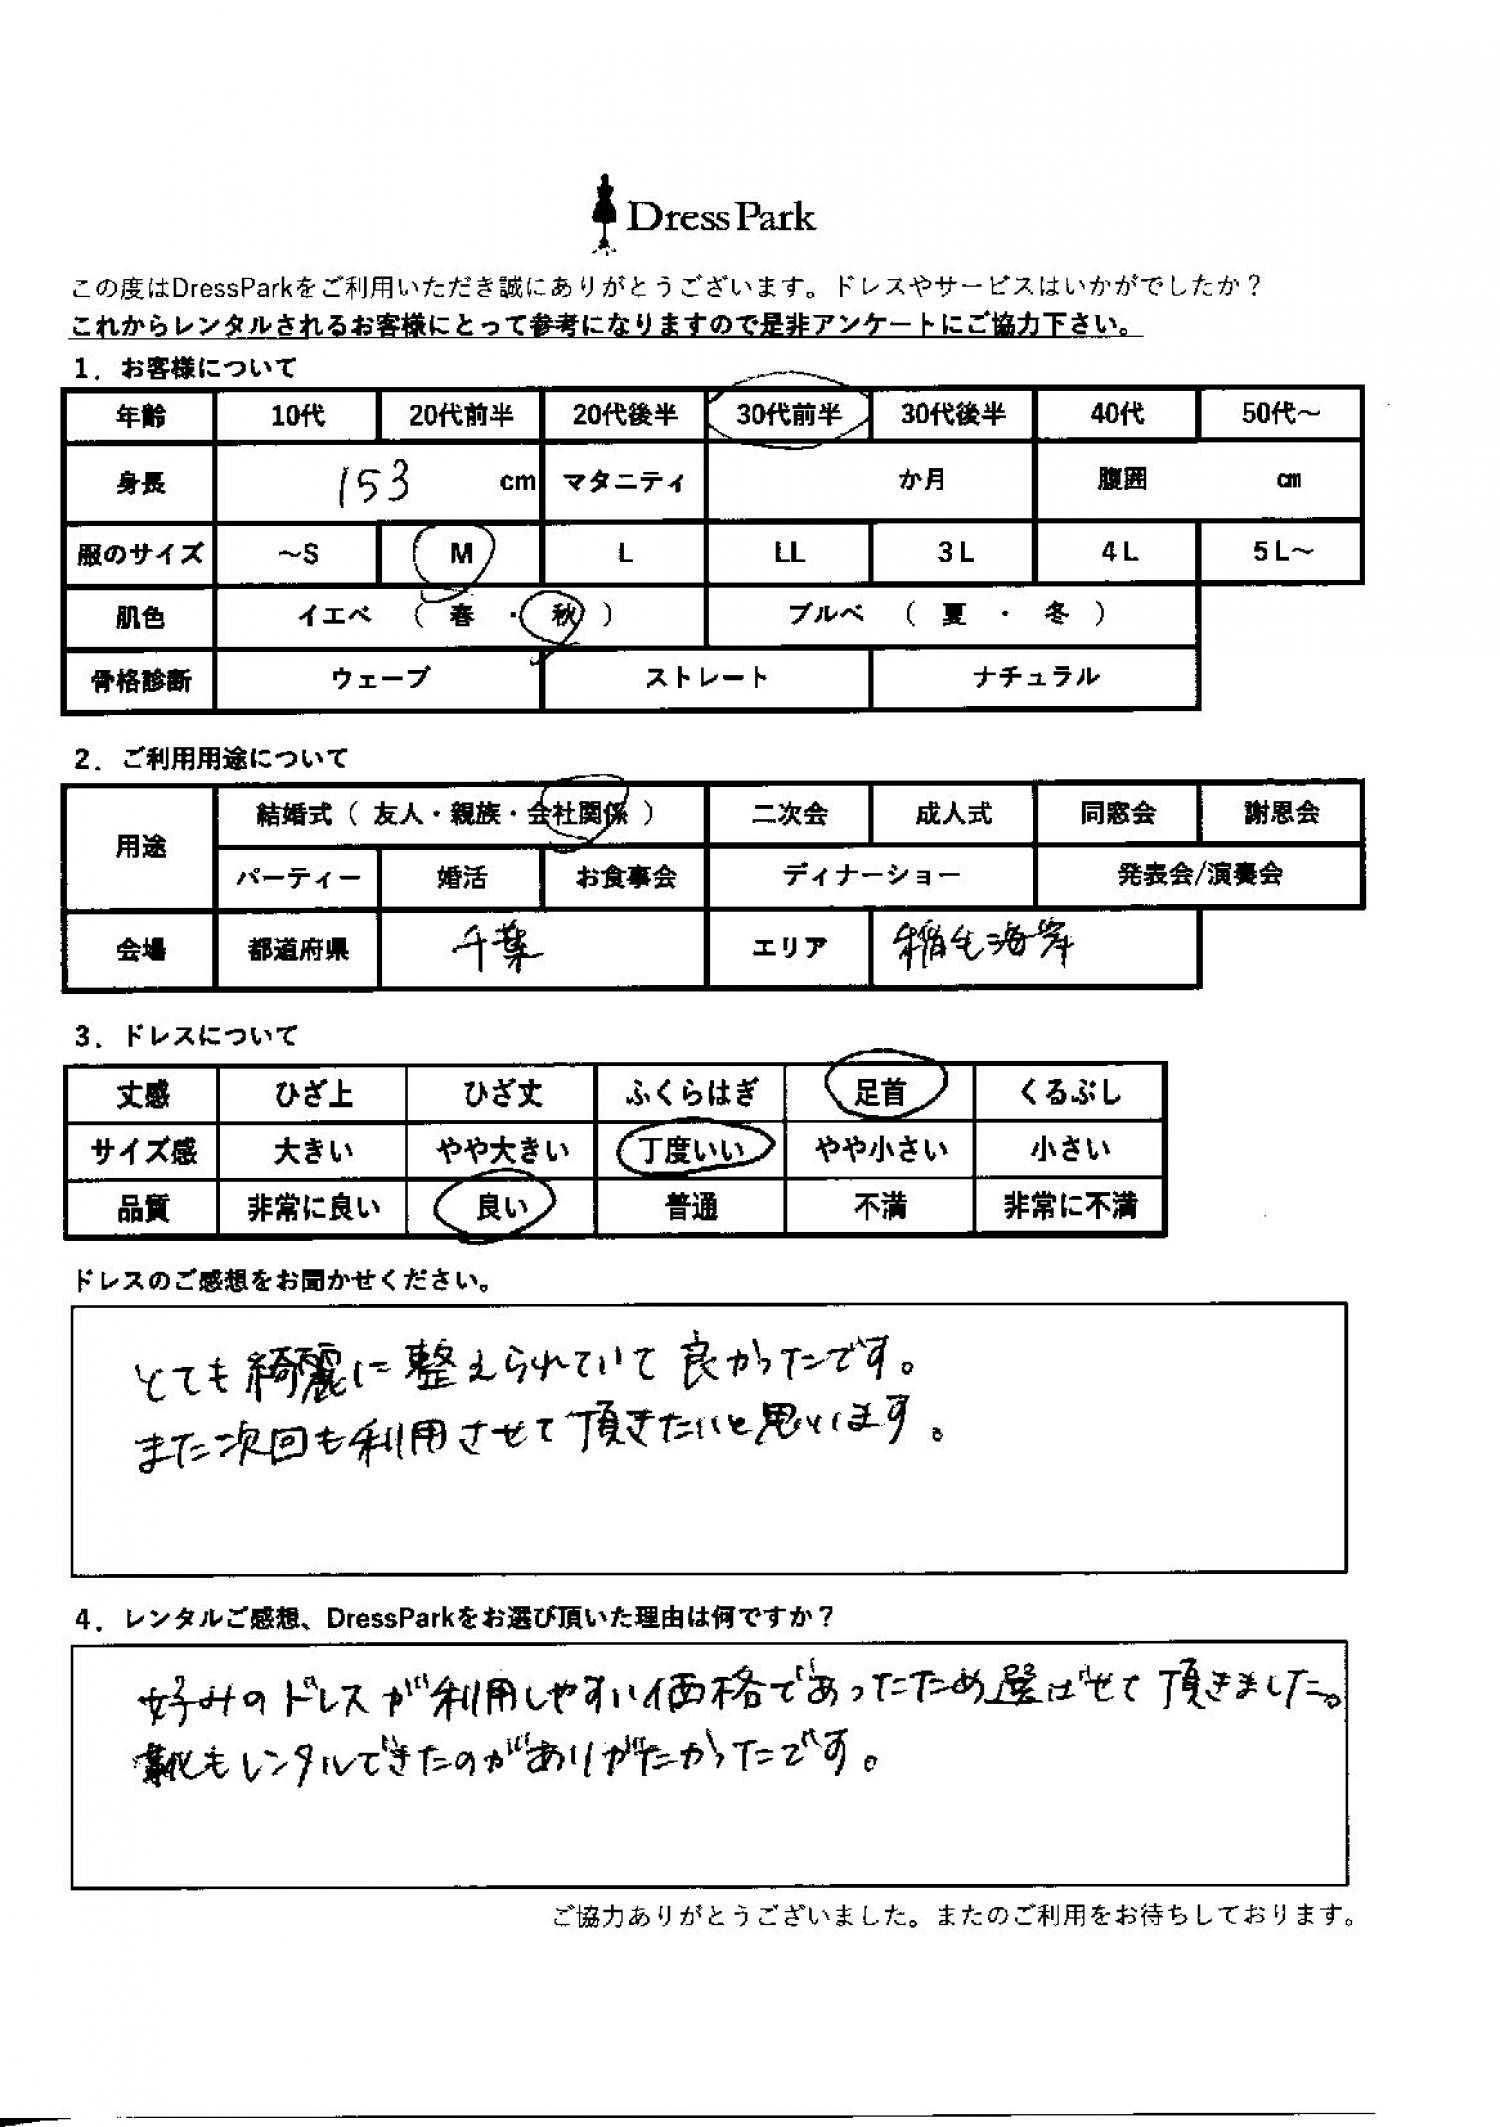 Dress Park
この度はDressParkをご利用いただき誠にありがとうございます。ドレスやサービスはいかがでしたか？
これからレンタルされるお客様にとって参考になりますので是非アンケートにご協力下さい。
1．お客様について
年齢 10代 20代前半 20代後半 30代前半 30代後半 40代 50代～
身長 153 cm マタニティ か月 腹囲 cm
服のサイズ ～S M L LL 3L 4L 5L～
肌色 イエベ （ 春 ・ 秋 ） ブルベ （ 夏 ・ 冬 ）
骨格診断 ウェーブ ストレート ナチュラル
2．ご利用用途について
用途 結婚式（ 友人・親族・会社関係 ） 二次会 成人式 同窓会 謝恩会
パーティー 婚活 お食事会 ディナーショー 発表会/演奏会
会場 都道府県 千葉 エリア 稲毛海岸
3．ドレスについて
丈感 ひざ上 ひざ丈 ふくらはぎ 足首 くるぶし
サイズ感 大きい やや大きい 丁度いい やや小さい 小さい
品質 非常に良い 良い 普通 不満 非常に不満
ドレスのご感想をお聞かせください。
とても綺麗に整えられていて良かったです。
また次回も利用させて頂きたいと思います。
4．レンタルご感想、DressParkをお選び頂いた理由は何ですか？
好みのドレスが利用しやすい価格であったため選ばせて頂きました。
靴もレンタルできたのがありがたかったです。
ご協力ありがとうございました。またのご利用をお待ちしております。